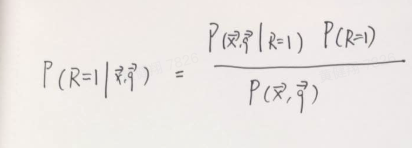 P(R=1|x⃗,q⃗) = P(x⃗,q⃗|R=1) P(R=1) / P(x⃗,q⃗)